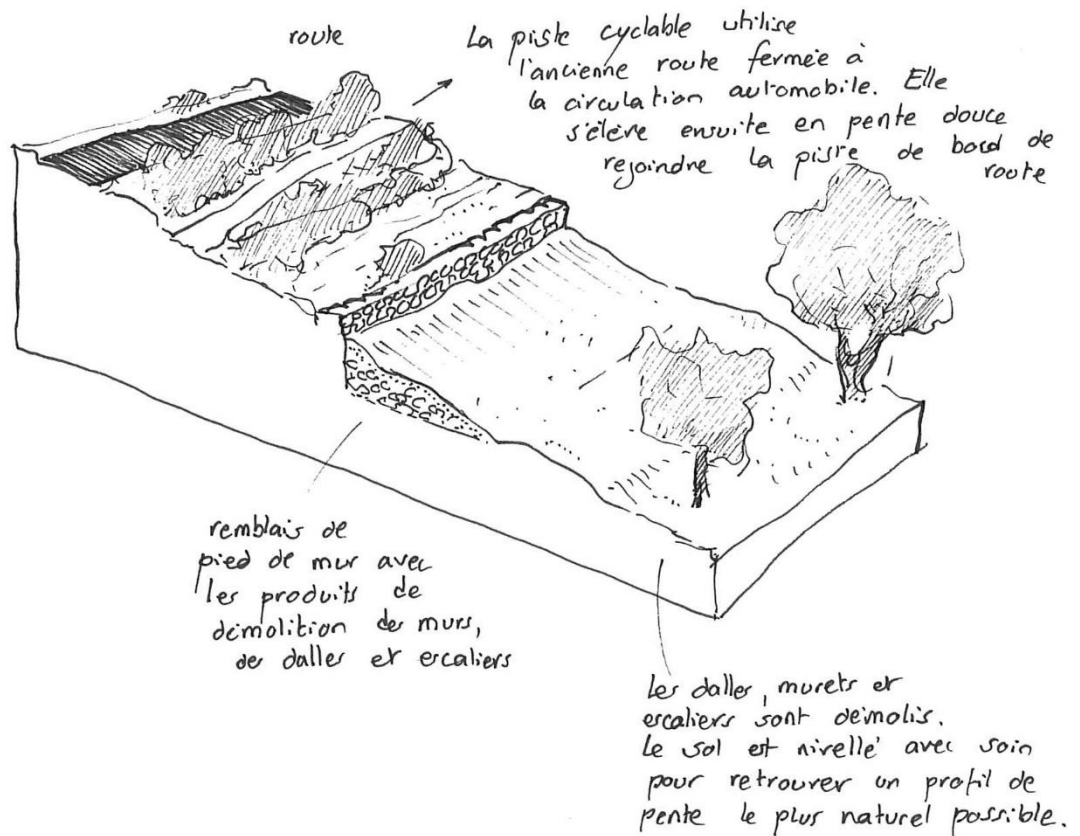 route
La piste cyclable utilise
l'ancienne route fermée à
la circulation automobile. Elle
s'élève ensuite en pente douce
rejoindre la piste de bord de
route
remblais de
pied de mur avec
les produits de
démolition des murs,
des dalles et escaliers
Les dalles, murets et
escaliers sont démolis.
Le sol est nivellé avec soin
pour retrouver un profil de
pente le plus naturel possible.